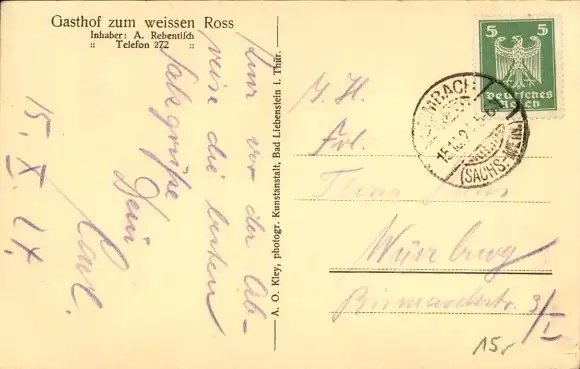 Gasthof zum weissen Ross
Inhaber: A. Rebentisch
:: Telefon 272 ::
Kurz vor der Ab-
reise die besten
Salzgrüße
Dein
Karl.
15. X. 27.
A. O. Kley, photogr. Kunstanstalt, Bad Liebenstein i. Thür.
5 5
Deutsches
Reich
(SACHS.
Frl.
Würzburg
Bismarckstr. 3/I
15,-